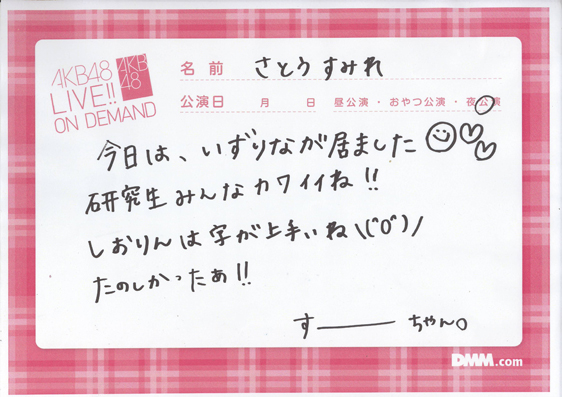 AKB48
LIVE!!
ON DEMAND
AKB
48
名前 さとうすみれ
公演日 月 日 昼公演・おやつ公演・夜公演
今日は、いずりなが居ました
研究生みんなカワイイね!!
しおりんは字が上手いね\(˚0˚)/
たのしかったぁ!!
すー――ちゃん。
DMM.com